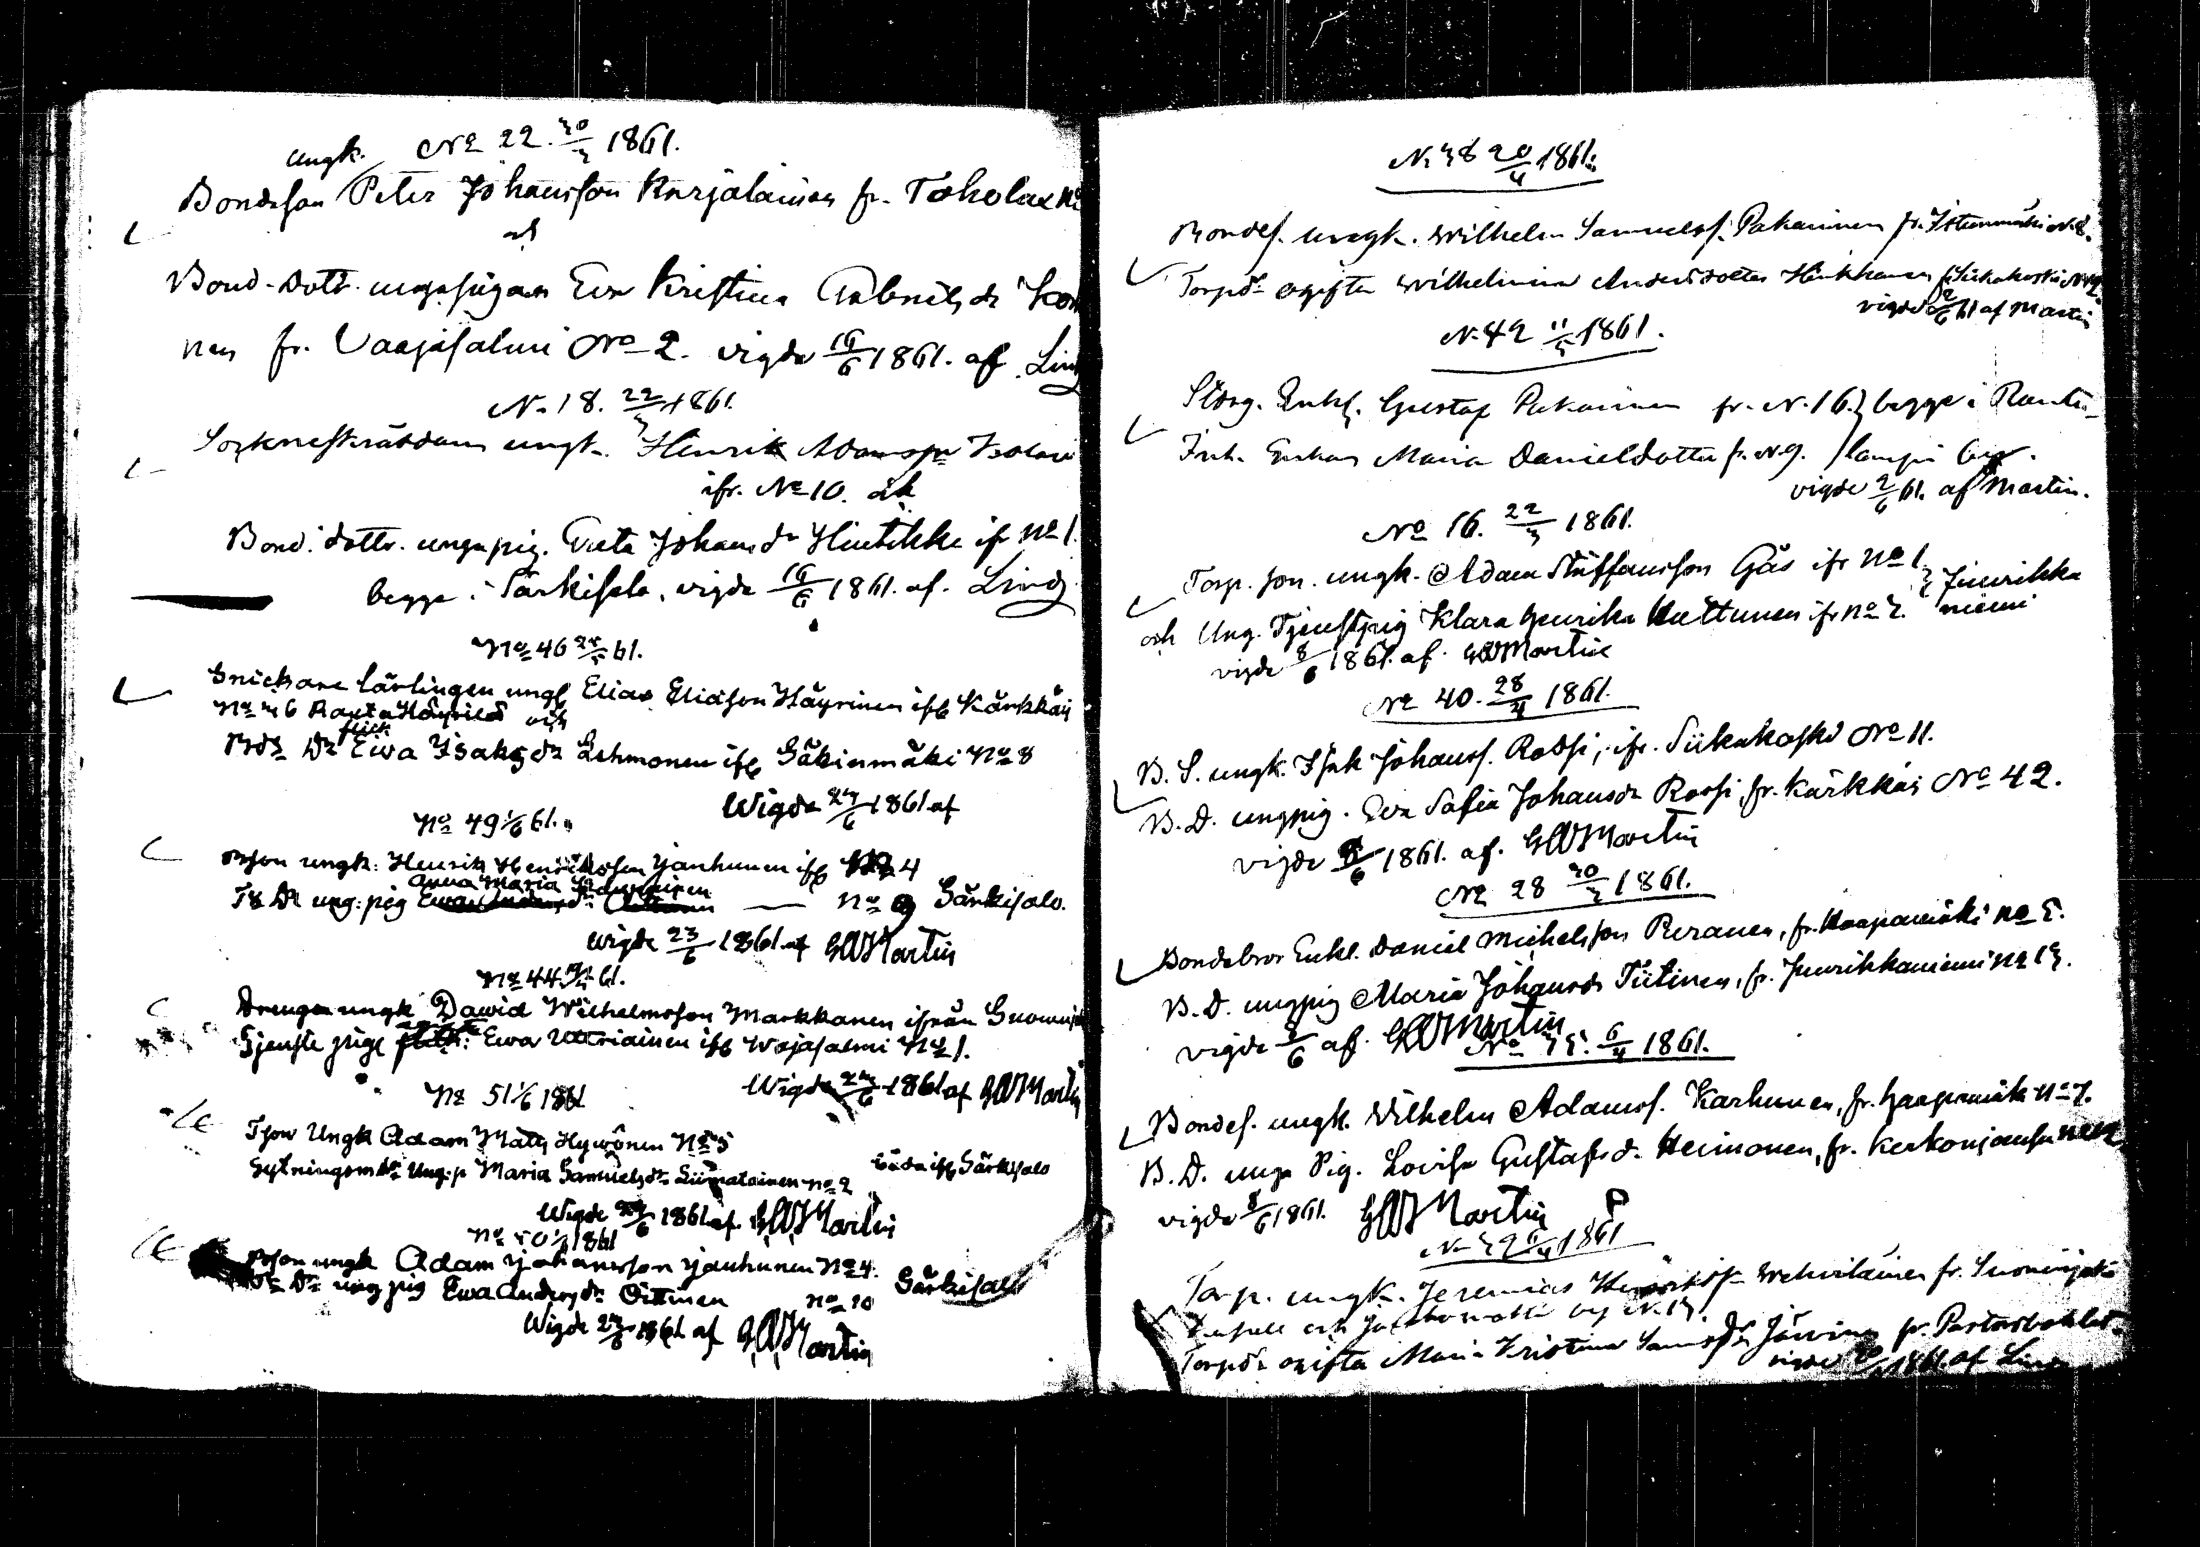 Ungk. No 22. 30/3 1861.
Bondeson Peter Johansson Karjalainen fr. Toholax No
och
Bond-dott. ungapigan Eva Kristina Gabriels dr Kor
nen fr. Vaajasalmi No 2. vigde 16/6 1861. af Lind
N. 18. 22/3 1861.
ungk. Henrik Adamsson
ifr. No 10. och
Bond. dottr. ungapig. Greta Johans dr Hintikka ifr No 1.
begge i Särkisalo, vigde 16/6 1861. af. Lind
No 46 61.
Snickare lärlingen ungk Elias Eliasson Häyrinen ifr Kärkkäi
No 36 och
Bds Dr Ewa Isaks dr Lehmonen ifr Säkinmäki No 8
Wigde 24/6 1861 af
No 49 1/6 61.
Bson ungk: Henrik Henriksson Janhunen ifr No 4
Anna Maria
Ts Dr ung: pig — No 9 Särkisalo.
Wigde 23/6 1861 af Martin
No 44 61.
Drengen ungk Dawid Wilhelmsson Markkanen ifrån
Tjenste pige Ewa ifr Wajasalmi No 1.
Wigde 24/6 1861 af Martin
No 51 1/6 1861
Tson Ungk Adam Mats Hywönen No 5
Sytningsm dr Ung.p Maria Samuels dr Liimatainen No 2 båda ifr Särkisalo
Wigde 24/6 1861 af Martin
No 50 1/6 1861
Bson ungk Adam Johansson Janhunen No 4.
Dr ung pig Ewa Anders dr Oittinen No 10 Särkisalo
Wigde 24/6 1861 af Martin
N. 38 20/4 1861.
Bondes. ungk. Wilhelm Samuelss. Pakarinen fr. Istunmäki N. 2.
Torpdr ogifta Wilhelmina Andersdotter Hänkkanen fr Siikakoski
vigde 2/6 61 af Martin
N. 42 11/5 1861.
Enkl. Gustaf Pakarinen fr. N. 16. } begge i Rauta-
Enkan Maria Danielsdotter fr. N. 9. lampi by.
vigde 2/6 61. af Martin.
No 16. 22/3 1861.
Torp. son. ungk. Adam Staffansson Gås ifr No 1 } Jiurikka
och Ung. Tjenstpig Klara Henrika Huttunen ifr No 3. niemi
vigde 8/6 1861. af. Martin
No 40. 28/4 1861.
B. S. ungk. Isak Johanss. Rossi, ifr. Siikakoski No 11.
B. D. ungpig. Eva Sofia Johansdr Rossi, fr. Kärkkäi No 42.
vigde 8/6 1861. af. Martin
No 28 30/3 1861.
Bondebror Enkl. Daniel Michelsson Puranen, fr. Haapamäki No 5.
B. D. ungpig Maria Johansdr Tiitinen, fr. Jiurikkaniemi No 13.
vigde 8/6 af. Martin
No 35. 6/4 1861.
Bondes. ungk. Wilhelm Adamss. Karhunen, fr. Haapamäki No 7.
B. D. unga Pig. Lovisa Gustafs d. Heimonen, fr. Kerkonjensu
vigde 8/6 1861. Martin
N. 32 6/4 1861
Torp. ungk. Jeremias Wehviläinen fr.
Torpdr ogifta Maria Kristina fr.
vigde 1861 af